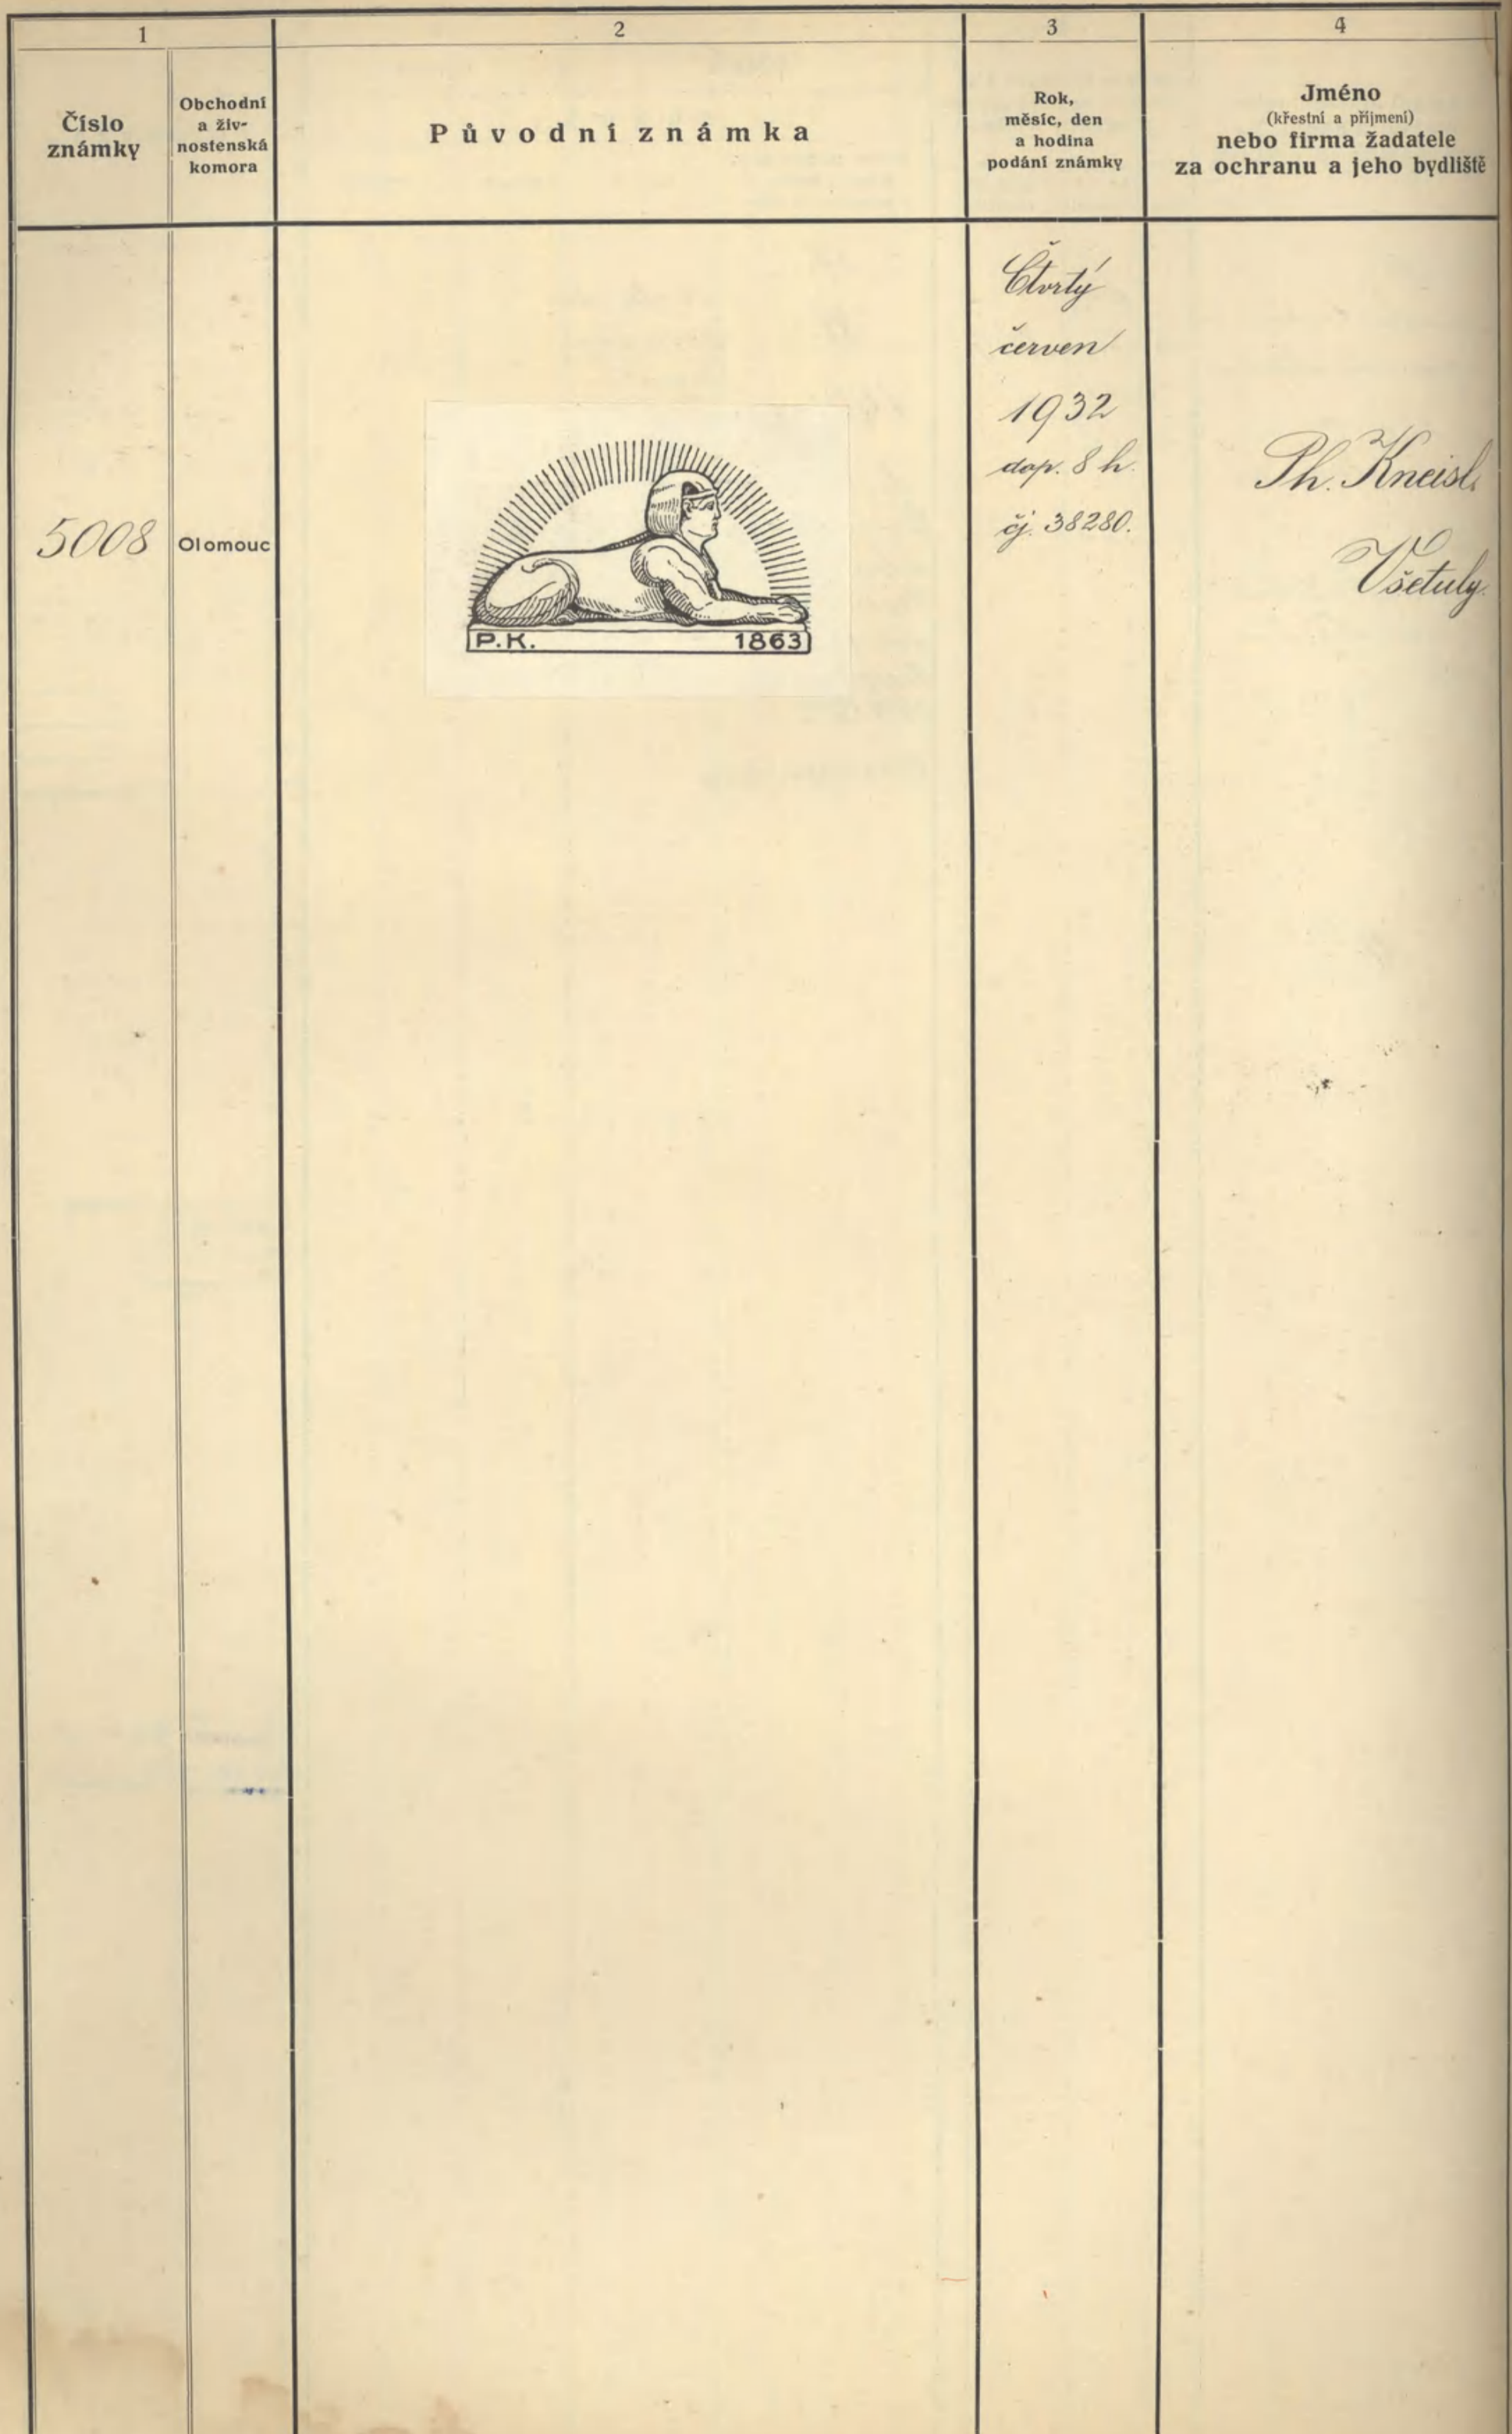 1
2
3
4
Číslo
známky
Obchodní
a živ-
nostenská
komora
Původní známka
Rok,
měsíc, den
a hodina
podání známky
Jméno
(křestní a příjmení)
nebo firma žadatele
za ochranu a jeho bydliště
5008
Olomouc
P.K. 1863
Čtvrtý
červen
1932
dop. 8 h.
čj. 38280.
Ph. Kneisl,
Všetuly.